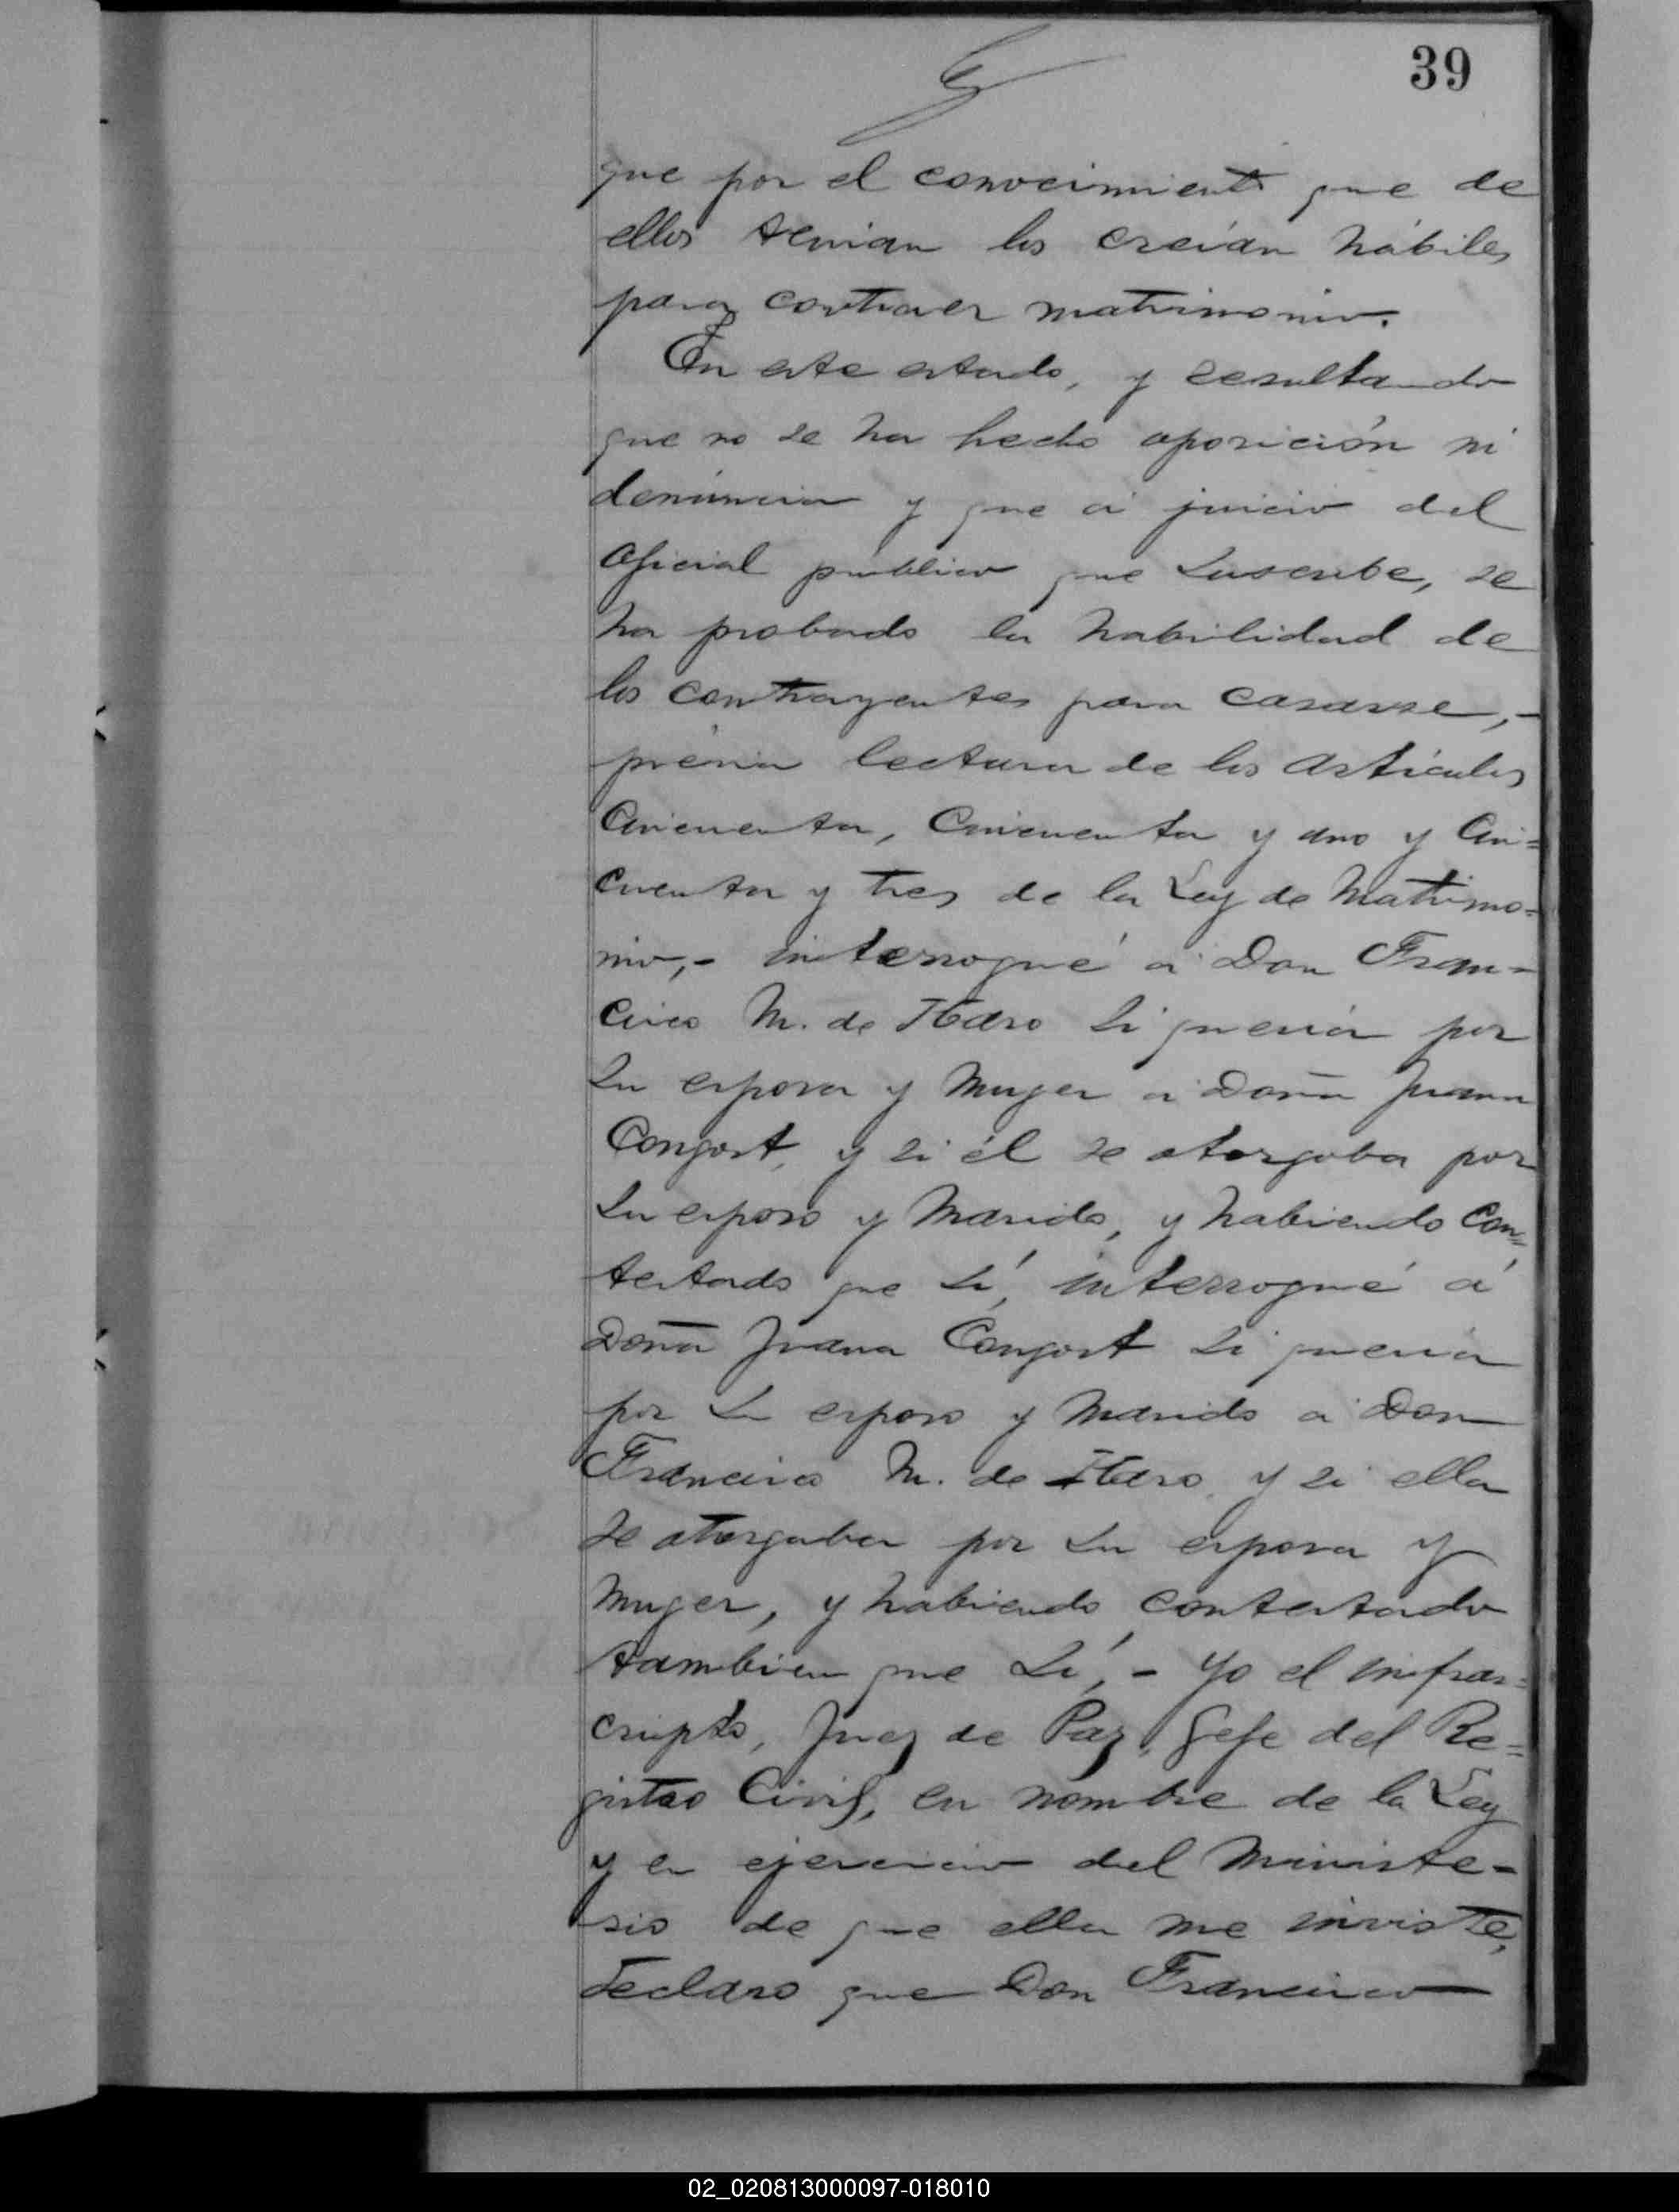 39
que por el conocimiento que de
ellos tenian los creían hábiles
para contraer matrimonio.
En este estado, y resultando
que no se ha hecho oposición ni
denúncia y que á juicio del
oficial publico que suscribe, se
ha probado la habilidad de
los contrayentes para casarse,-
prévia lectura de los artículos
Cincuenta, Cincuenta y uno y Cin=
cuenta y tres de la Ley de Matrimo=
nio,- interrogué á Don Fran=
cisco M. de Haro si queria por
su esposa y muger á Doña Juana
Congost, y si él se otorgaba por
su esposo y marido, y habiendo con=
testado que sí, interrogué á
Doña Juana Congost si queria
por su esposo y marido á Don
Francisco M. de Haro, y si ella
se otorgaba por su esposa y
muger, y habiendo contestado
tambien que sí,- Yo el infras=
cripto, Juez de Paz, Gefe del Re=
gistro Civil, en nombre de la Ley
y en ejercicio del Ministe-
rio de que ella me inviste,
declaro que Don Francisco
02_020813000097-018010